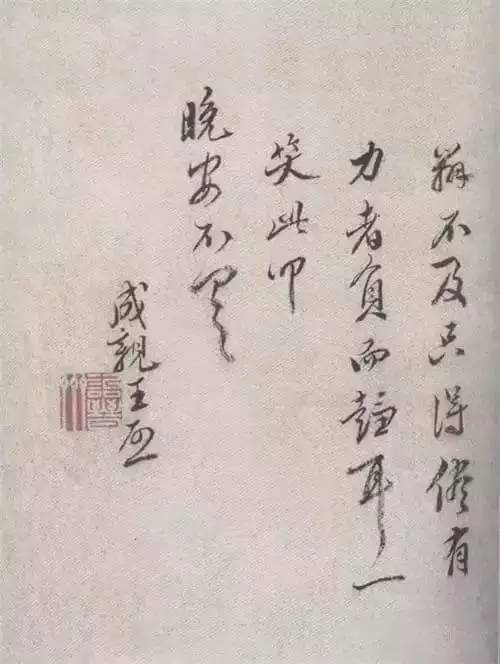 辦不及只得俟有
力者負而趨耳一
笑此叩
晚安不盡
成親王